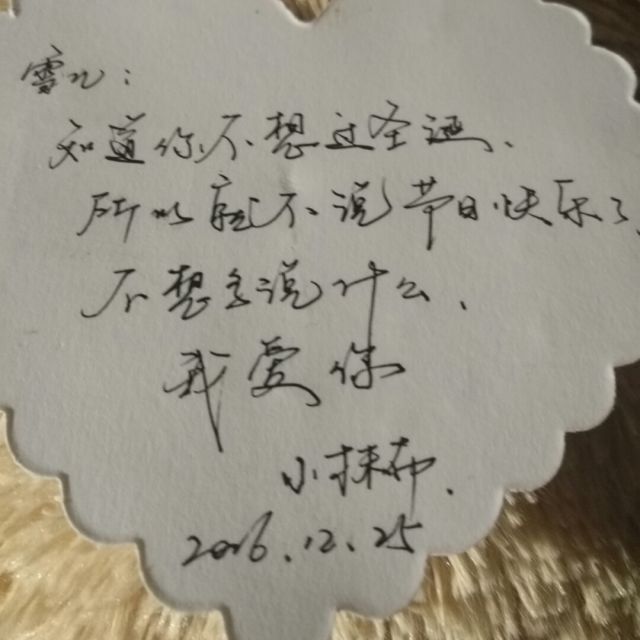 雪儿：
知道你不想过圣诞、
所以就不说节日快乐了、
不想多说什么、
我爱你
小抹布.
2016.12.25